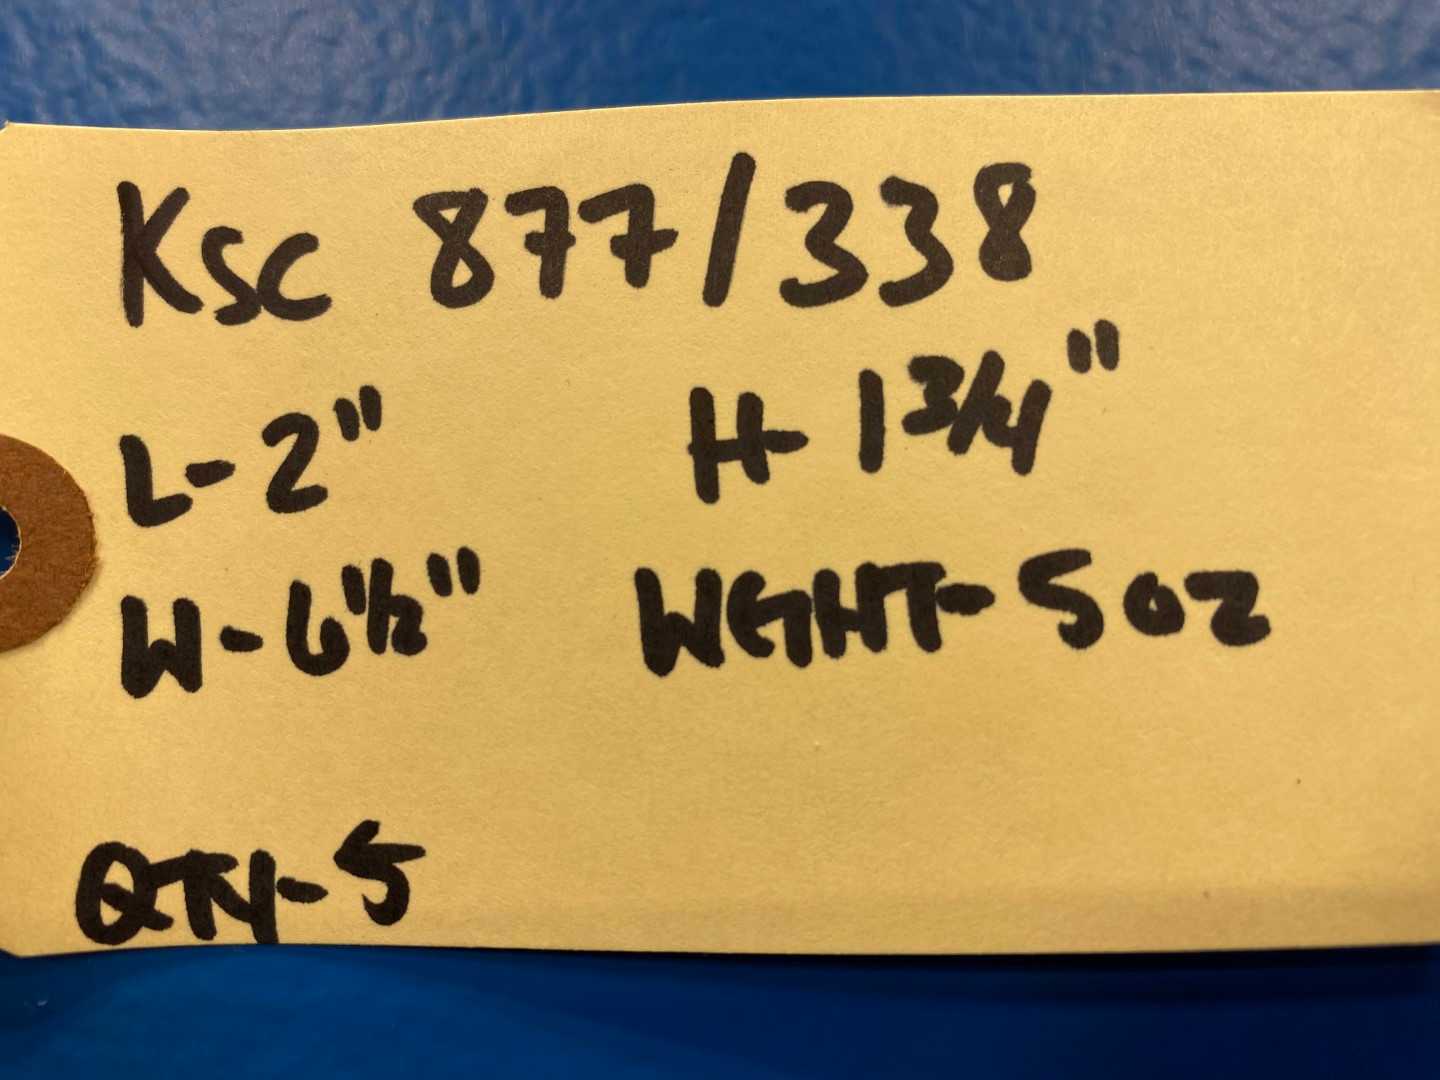 KSC 877/338
L-2" H-1 3/4"
W-6 1/2" WGHT-5 oz
QTY-5